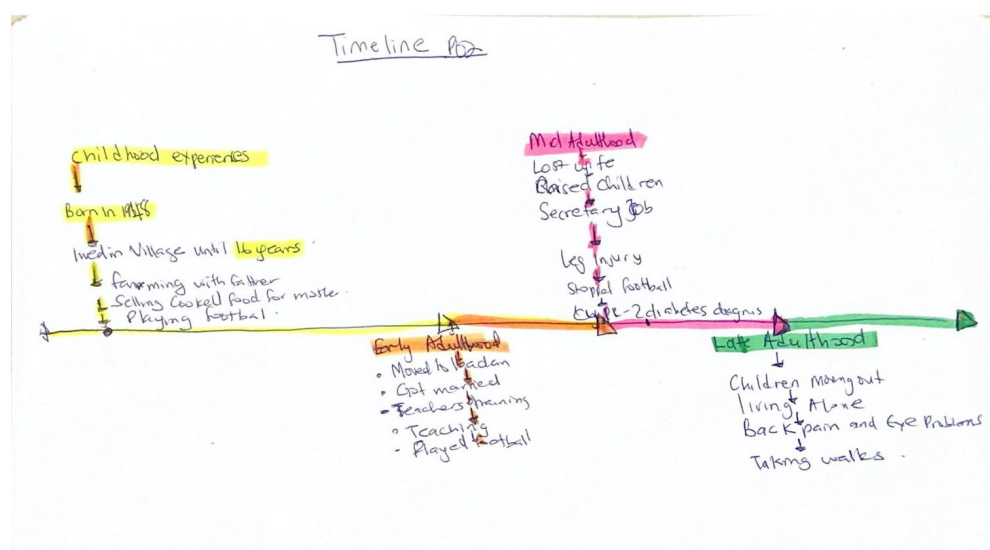 Timeline P02
Childhood experiences
Born In 1948
lived in Village until 16 years
farming with father
Selling Cooked food for
Playing footbal
Early Adulthood
Moved to Ibadan
Got married
Teachers training
Teaching
Played football
Mid Adulthood
Lost wife
Raised Children
Secretary Job
Leg Injury
Stopped football
-2 diabetes diagnis
Late Adulthood
Children Moving out
living Alone
Back pain and Eye Problems
Taking walks